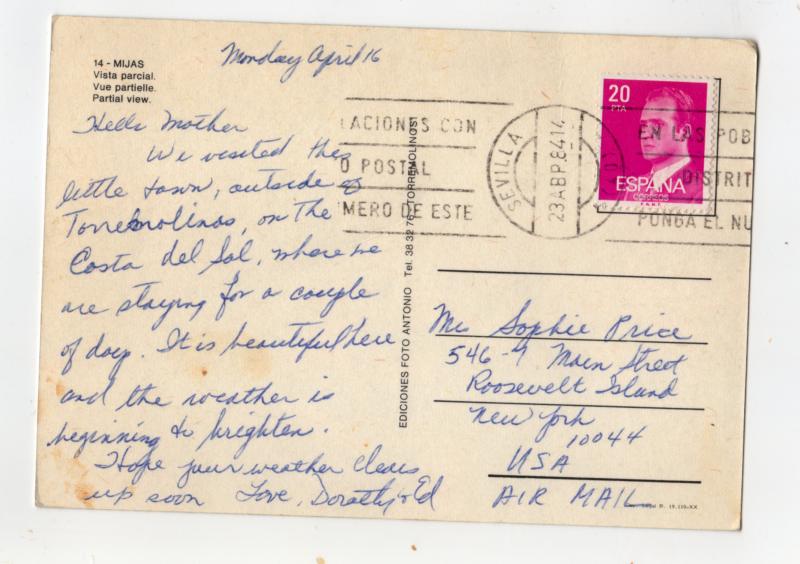 14 - MIJAS
Vista parcial.
Vue partielle.
Partial view.
Monday April 16
Hello Mother
We visited this
little town, outside of
Torremolinos, on the
Costa del Sol, where we
are staying for a couple
of days. It is beautiful here
and the weather is
beginning to brighten.
Hope your weather clears
up soon Love, Dorothy & Ed
EDICIONES FOTO ANTONIO Tel. 38 32 76 TORREMOLINOS
LACIONES CON
O POSTAL
MERO DE ESTE
SEVILLA
23 ABR. 84 14
EN LAS POB
DISTRIT
PONGA EL NU
20
PTA
ESPAÑA
CORREOS
F.N.M.T.
Ms Sophie Price
546-9 Main Street
Roosevelt Island
New York
10044
USA
AIR MAIL